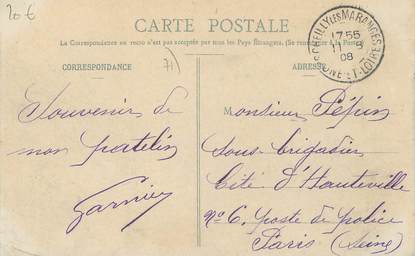 20 €
CARTE POSTALE
La Correspondance au recto n'est pas acceptée par tous les Pays Étrangers. (Se renseigner à la
CORRESPONDANCE
71
ADRESSE
CHEILLY LES MARANGES
17-55
11 - 9
08
SAONE-ET-LOIRE
Souvenir de
mon patelin
Garnier
Monsieur Pépin
sous-brigadier
Cité d'Hauteville
No 6. poste de police
Paris (Seine)